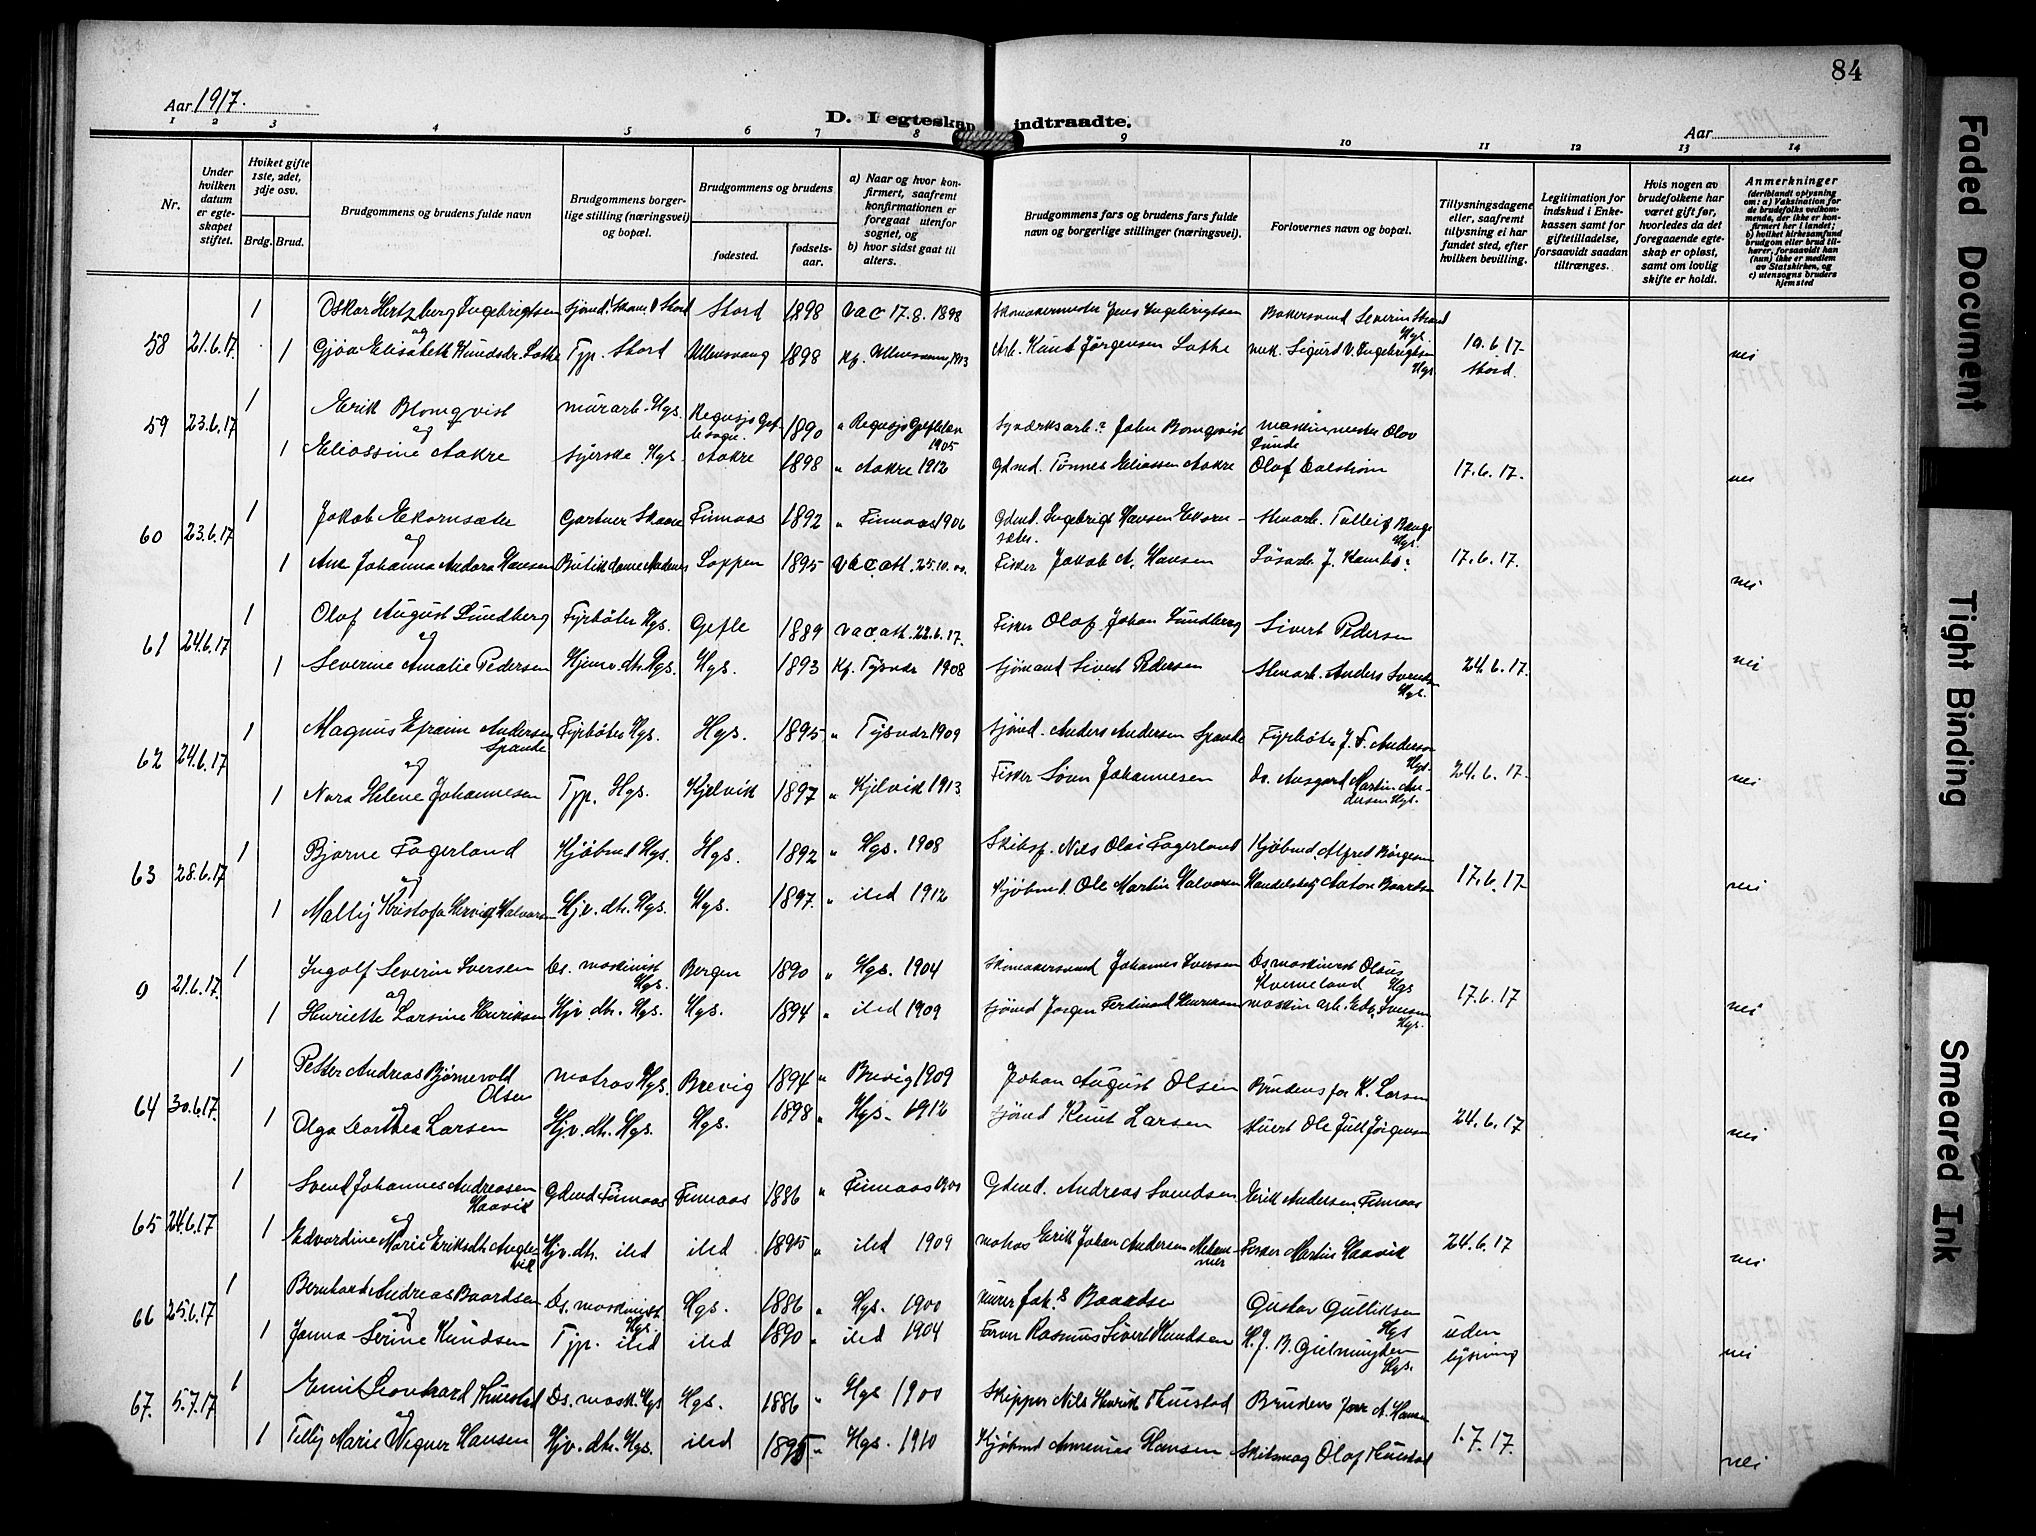 84
Aar 1917.
D. I egteskap indtraadte.
Aar
1 2 3 4 5 6 7 8 9 10 11 12 13 14
Nr.
Under hvilken datum er egteskapet stiftet.
Hviket gifte 1ste, 2det, 3dje osv.
Brdg. Brud.
Brudgommens og brudens fulde navn
Brudgommens borgerlige stilling (næringsvei) og bopæl.
Brudgommens og brudens
fødested.
fødselsaar.
a) Naar og hvor konfirmert, saafremt konfirmationen er foregaat utenfor sognet, og
b) hvor sidst gaat til alters.
Brudgommens fars og brudens fars fulde navn og borgerlige stillinger (næringsvei).
Forlovernes navn og bopæl.
Tillysningsdagene eller, saafremt tillysning ei har fundet sted, efter hvilken bevilling.
Legitimation for indskud i Enkekassen samt for giftetilladelse, forsaavidt saadan tiltrænges.
Hvis nogen av brudefolkene har været gift før, hvorledes da det foregaaende egteskap er opløst, samt om lovlig skifte er holdt.
Anmerkninger
(deriblandt oplysning om: a) Vaksination for de brudefolks vedkommende, der ikke er konfirmert her i landet; b) hvilket kirkesamfund brudgom eller brud tilhører, forsaavidt han (hun) ikke er medlem av Statskirken, og c) utensogns bruders hjemsted
1 Oskar Hertzberg Ingebrigtsen Sjømd. Stord 1898 vac 17.8.1898 Skomakermester Jens Ingebrigtsen Bakersvend Severin Strand Hgs.
58 21.6.17 og
1 Gjøa Elisabeth Knudsdr. Lothe Typ. Stord Ullensvang 1898 Kf. Ullensvang 1913 Arb. Knut Jørgensen Lothe Sigurd V. Ingebrigtsen Hgs 10.6.17 Stord. nei
1 Erik Blomqvist murarb. Hgs. 1890 " 1905 John Bomqvist maskinmester Olav Lunde
59 23.6.17 og
1 Eliassine Aakre Syerske Hgs. Aakre 1898 " Aakre 1912 Gdmd. Tønnes Eliassen Aakre Olaf Dalstrøm 17.6.17. nei
1 Jakob Ekornsæter Gartner Skaare Finnaas 1892 " Finnaas 1906 Gdmd. Ingebrigt Hansen Ekornsæter. Stenarb. Tolleif Bauge Hgs.
60 23.6.17 og
1 Ane Johanna Andora Hansen Loppen 1895 vac.att. 25.10.00. Fisker Jakob A. Hansen Løsarb. J. 17.6.17. nei
1 Olaf August Lundberg Fyrbøter Hgs. Gefle 1889 vac.att. 22.6.17. Fisker Olof Johan Lundberg Sivert Pedersen
61 24.6.17 og
1 Severine Amalie Pedersen Hjemv. dtr. Hgs. Hgs. 1893 Kf. Tysvær 1908 Sjømand Sivert Pedersen Stenarb. Anders Svendsen Hgs. 24.6.17. nei
1 Magnus Efraim Andersen Spande Fyrbøter Hgs. Hgs. 1895 " Tysvær 1909 Sjømd. Anders Andersen Spande Fyrbøter J. F. Andersen Hgs.
62 24.6.17 og
1 Nora Helene Johannesen Typ. Hgs. Kjelvik 1897 " Kjelvik 1913 Fisker Sören Johannesen Ds. Martin Andersen Hgs. 24.6.17. nei
1 Bjarne Fagerland Kjøbmd Hgs. Hgs. 1892 " Hgs. 1908 Skibsf. Nils Olai Fagerland Kjøbmd. Alfred Børgesen
63 28.6.17 og
1 Mally Kristofa Hervig Halvorsen Hjv. dtr. Hgs. Hgs. 1897. " ibid 1912 Kjøbmd. Ole Martin Halvorsen Anton Baardsen 17.6.17 nei
1 Ingolf Severin Iversen Ds. maskinist Hgs. Bergen 1890 " Hgs. 1904 Skomakersvend Johannes Iversen Ds maskinist Olaus Kverneland Hgs
9 21.6.17. og
1 Henriette Larsine Henriksen Hjv. dtr. Hgs. Hgs. 1894 " ibid 1909 Sjømd Jørgen Ferdinand Henriksen maskin arb. Edv. Iversen Hgs. 17.6.17 nei
1 Petter Andreas Bjørnevold Olsen matros Hgs. Brevig 1894 " Brevig 1909 Johan August Olsen Brudens far K. Larsen
64 30.6.17 og
1 Olga Dorthea Larsen Hjv. dtr. Hgs. Hgs. 1898 " Hgs. 1912 Sjømd Knut Larsen Ole Juel Jørgensen 24.6.17 nei
1 Svend Johannes Andreassen Haavik Gdmd Finnaas Finnaas 1886 " Finnaas 1900 Gdmd. Andreas Svendsen Erik Andersen Finnaas
65 24.6.17 og
1 Edvardine Marie Eriksdtr. Hjv. dtr. ibid ibid 1895 " ibid 1909 matros Erik Johan Andersen Fisker Martin Haavik 24.6.17 nei
1 Bernhard Andreas Baardsen Ds. maskinist Hgs. Hgs. 1886 " Hgs. 1900 murer Joh.s Baardsen Gustav Gulliksen Hgs
66 25.6.17 og
1 Janna Serine Knudsen Typ. ibid ibid 1890 " ibid 1904 Rasmus Sivert Knudsen H. J. B. Gielmuyden Hgs. uden lysning nei
1 Emil Leonhard Thuestad Ds. mask. Hgs Hgs. 1886 " Hgs 1900 Skipper Nils Henrik Thuestad Brudens far A. Hansen
67. 5.7.17 og
1 Telly Marie Wegner Hansen Hjv. dtr. Hgs. ibid 1895 " Hgs. 1910 Kjøbmd Hansen Skibsmag Olaf Thuestad 1.7.17. nei
Faded Document
Tight Binding
Smeared Ink